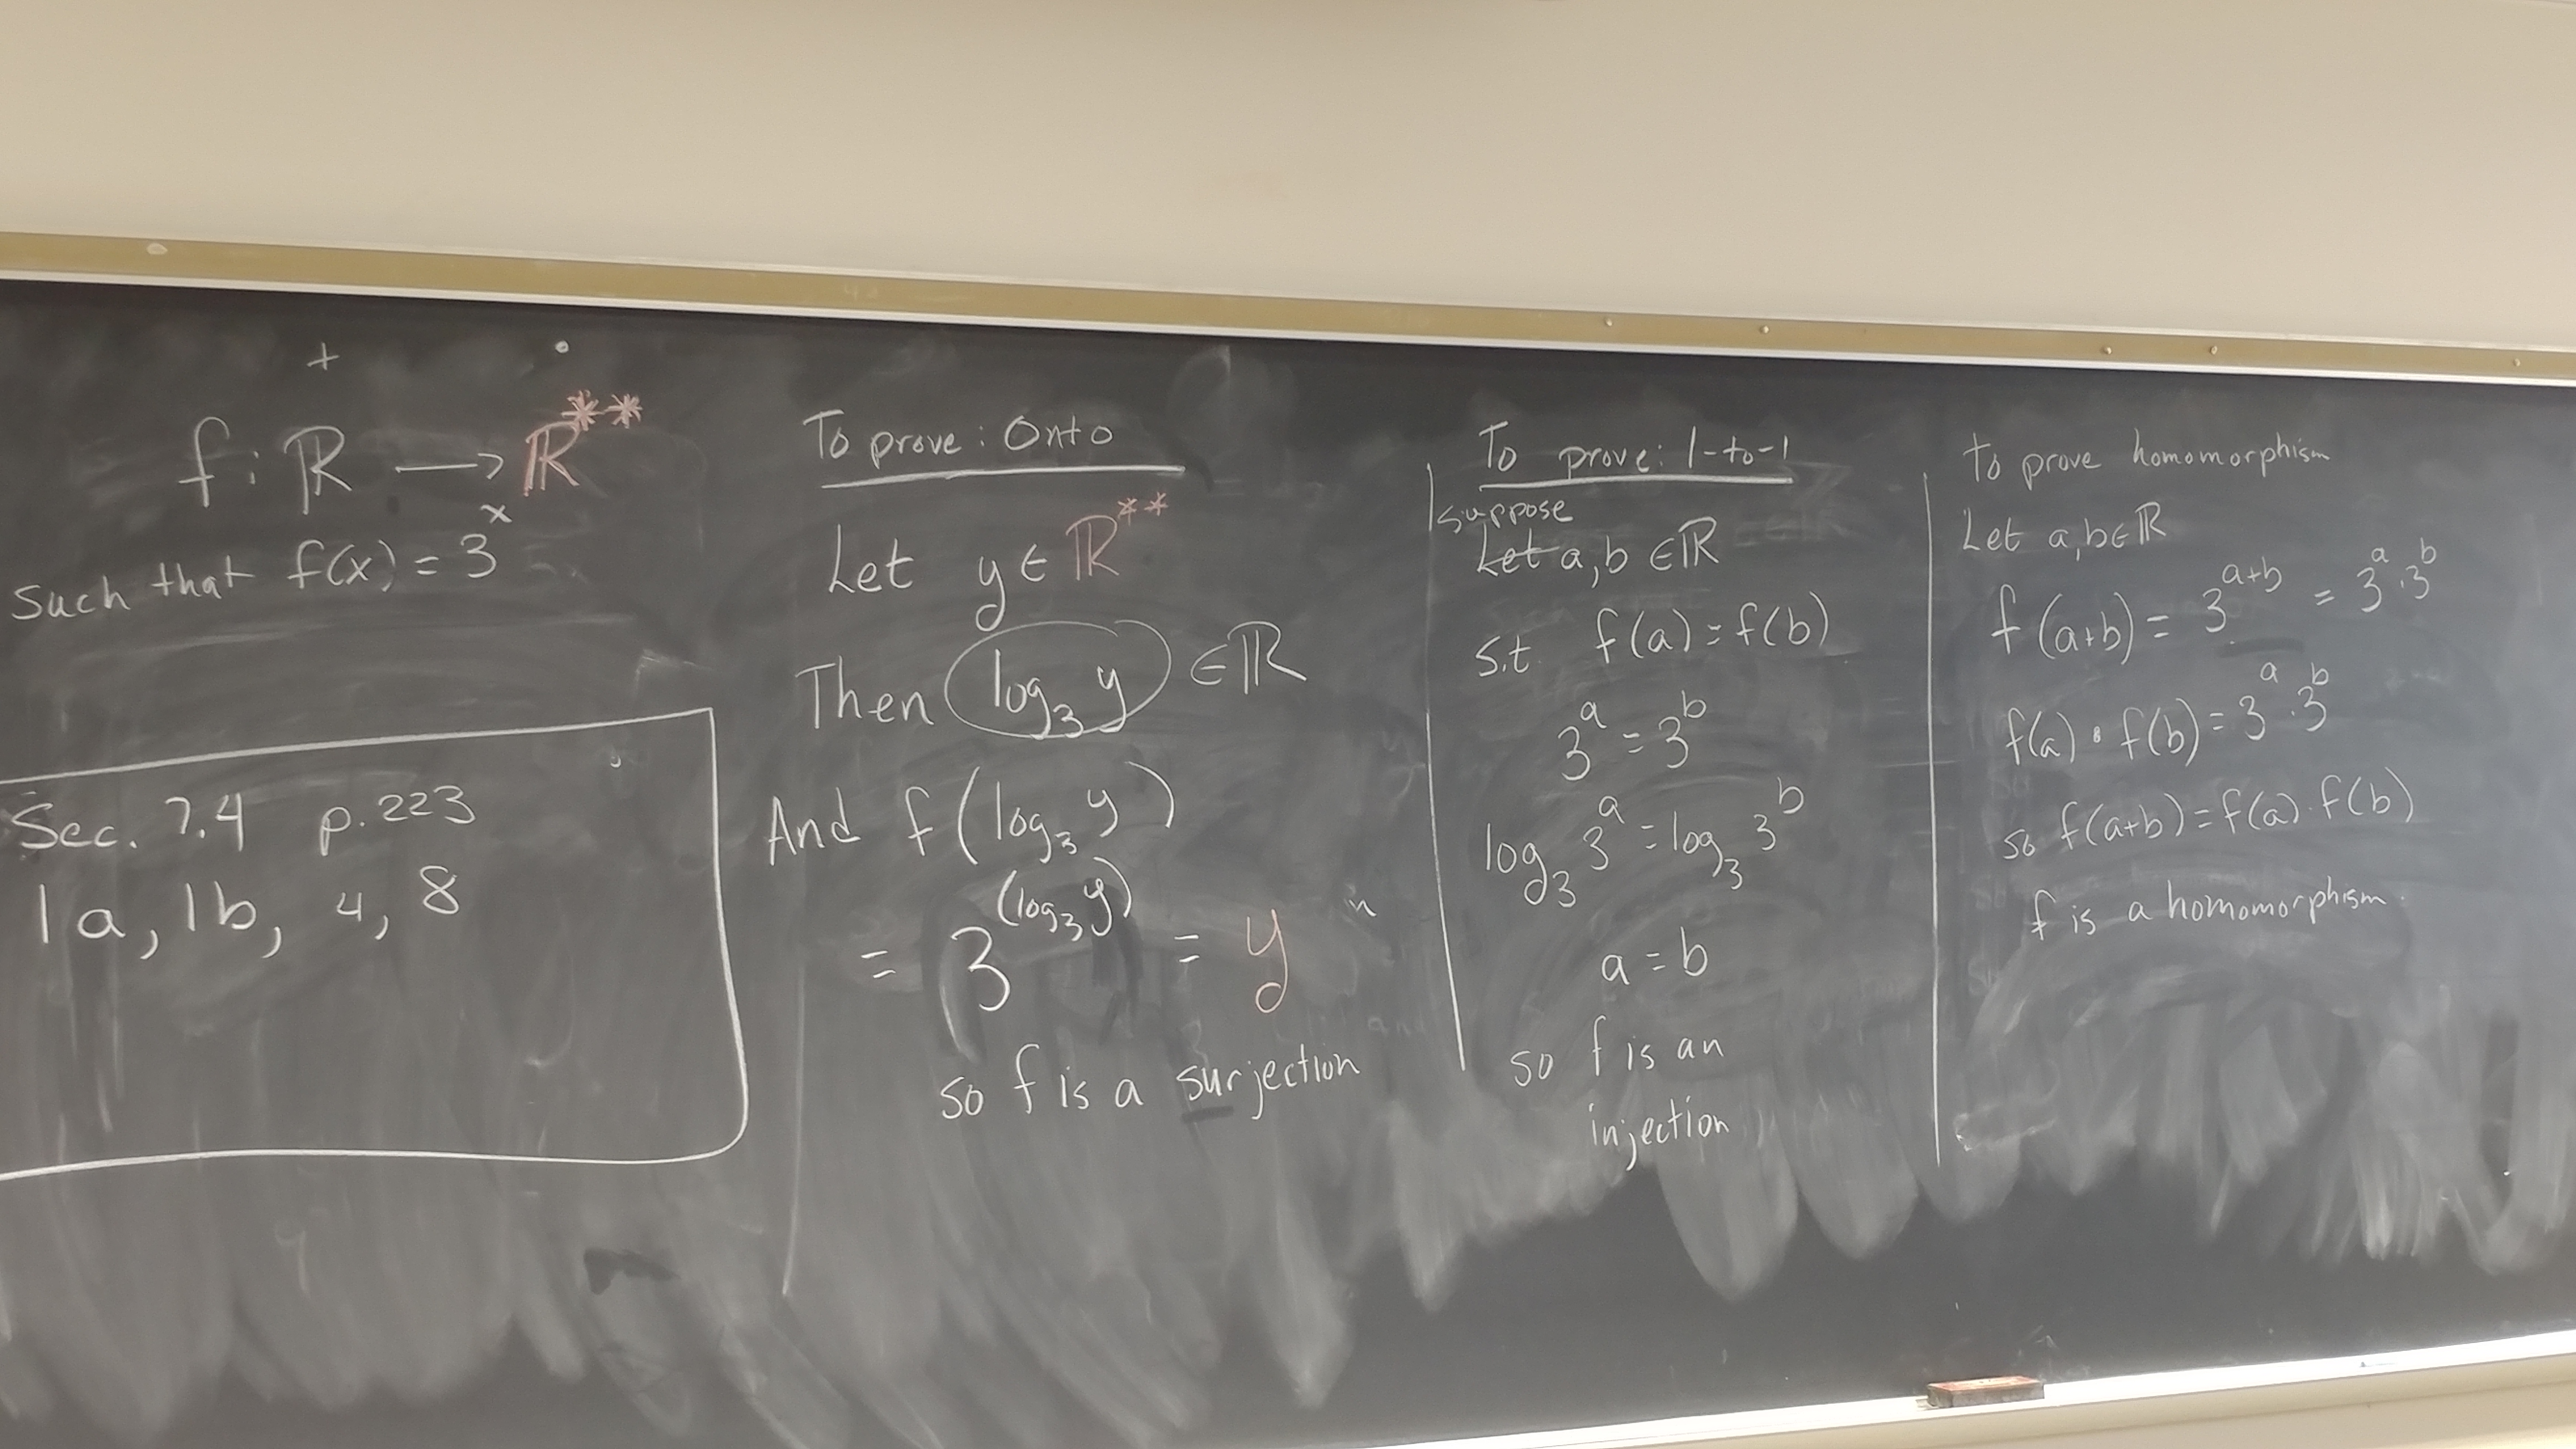 + •
f: ℝ ⟶ ℝ**
Such that f(x) = 3^x
Sec. 7.4 p. 223
1a, 1b, 4, 8
To prove: Onto
Let y ∈ ℝ**
Then log₃ y ∈ ℝ
And f(log₃ y)
= 3^(log₃ y) = y
so f is a surjection
To prove: 1-to-1
suppose
Let a, b ∈ ℝ
s.t. f(a) = f(b)
3^a = 3^b
log₃ 3^a = log₃ 3^b
a = b
so f is an
injection
To prove homomorphism
Let a, b ∈ ℝ
f(a+b) = 3^(a+b) = 3^a · 3^b
f(a) • f(b) = 3^a · 3^b
so f(a+b) = f(a) · f(b)
f is a homomorphism.